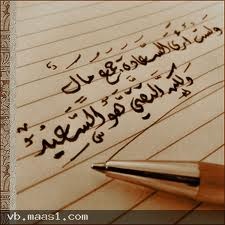 ولست أرى السعادة جمع مال
ولكن التقي هو السعيد
vb.maas1.com